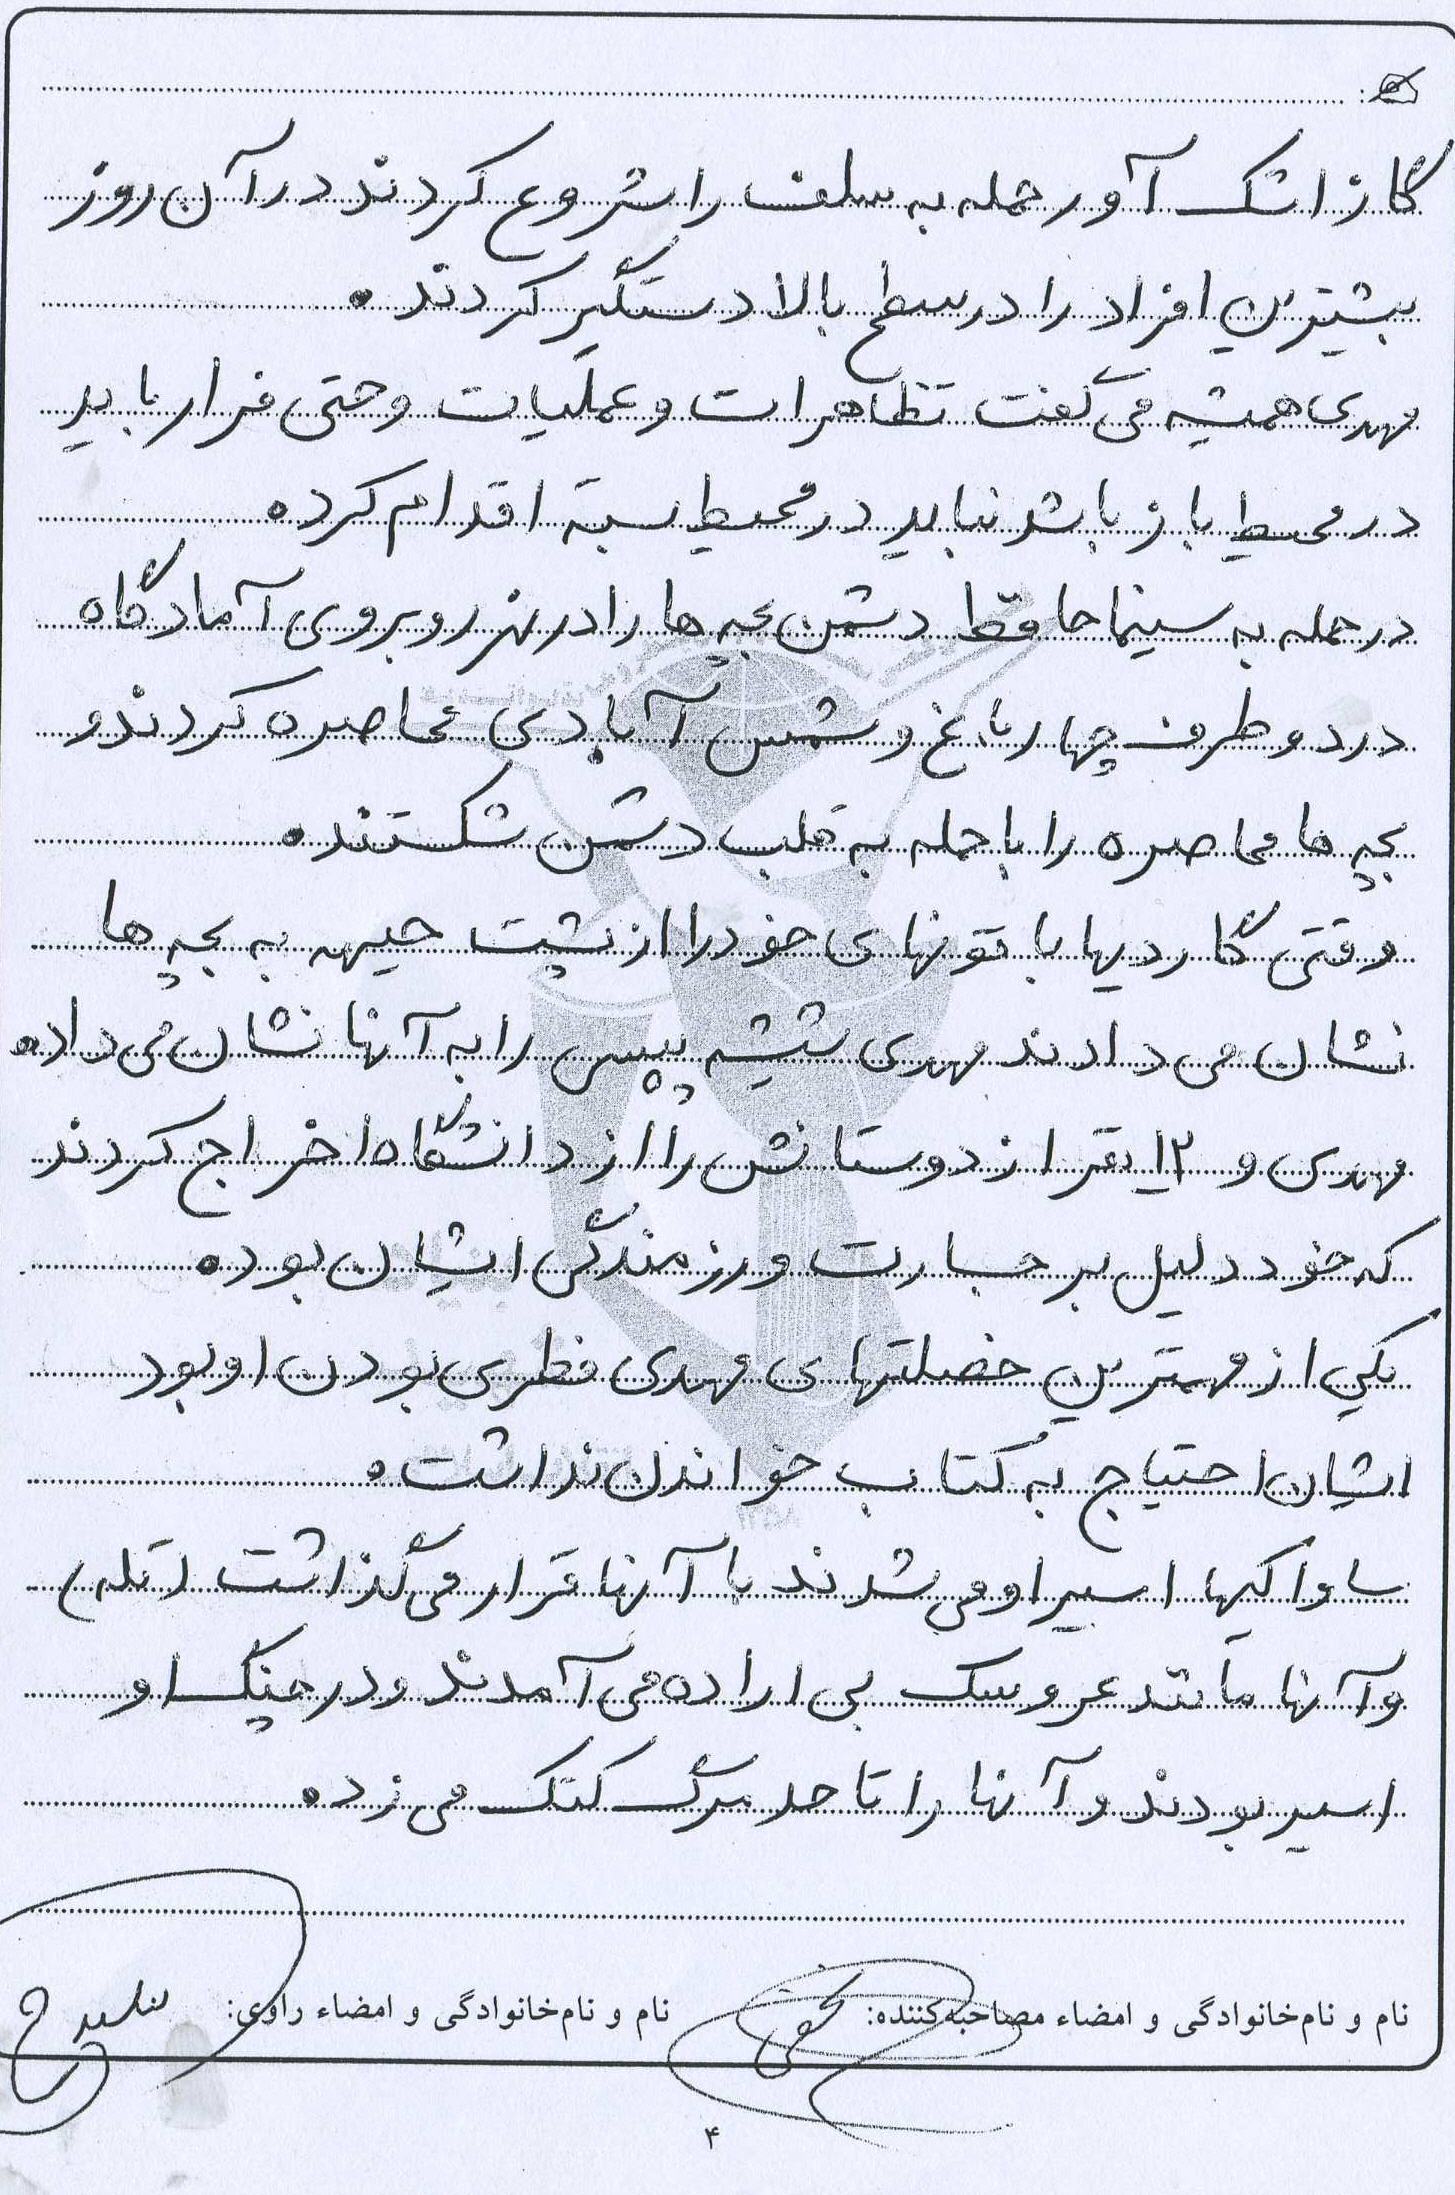 گاز اشک آور حمله به سلف را شروع کردند در آن روز
بیشترین افراد را در سطح بالا دستگیر کردند.
مهدی همیشه می گفت تظاهرات و عملیات و حتی فرار باید
در محیط باز باشد نباید در محیط بسته اقدام کرد.
در حمله به سینما حافظ دشمن بچه ها را در نهر روبروی آمادگاه
در دو طرف چهارباغ و شمس آبادی محاصره کردند و
بچه ها محاصره را با حمله به قلب دشمن شکستند.
وقتی گاردیها باتونهای خود را از پشت جبهه به بچه ها
نشان می دادند مهدی شیشه پپسی را به آنها نشان می داد.
مهدی و ۱۲ نفر از دوستانش را از دانشگاه اخراج کردند
که خود دلیل بر جسارت و رزمندگی ایشان بود.
یکی از مهمترین خصلتهای مهدی فطری بودن او بود
ایشان احتیاج به کتاب خواندن نداشت.
ساواکیها اسیر او می شدند با آنها قرار می گذاشت (تله)
و آنها مانند عروسک بی اراده می آمدند و در چنگ او
اسیر بودند و آنها را تا حد مرگ کتک می زد.
نام و نام‌خانوادگی و امضاء مصاحبه‌کننده: نام و نام‌خانوادگی و امضاء راوی:
۴